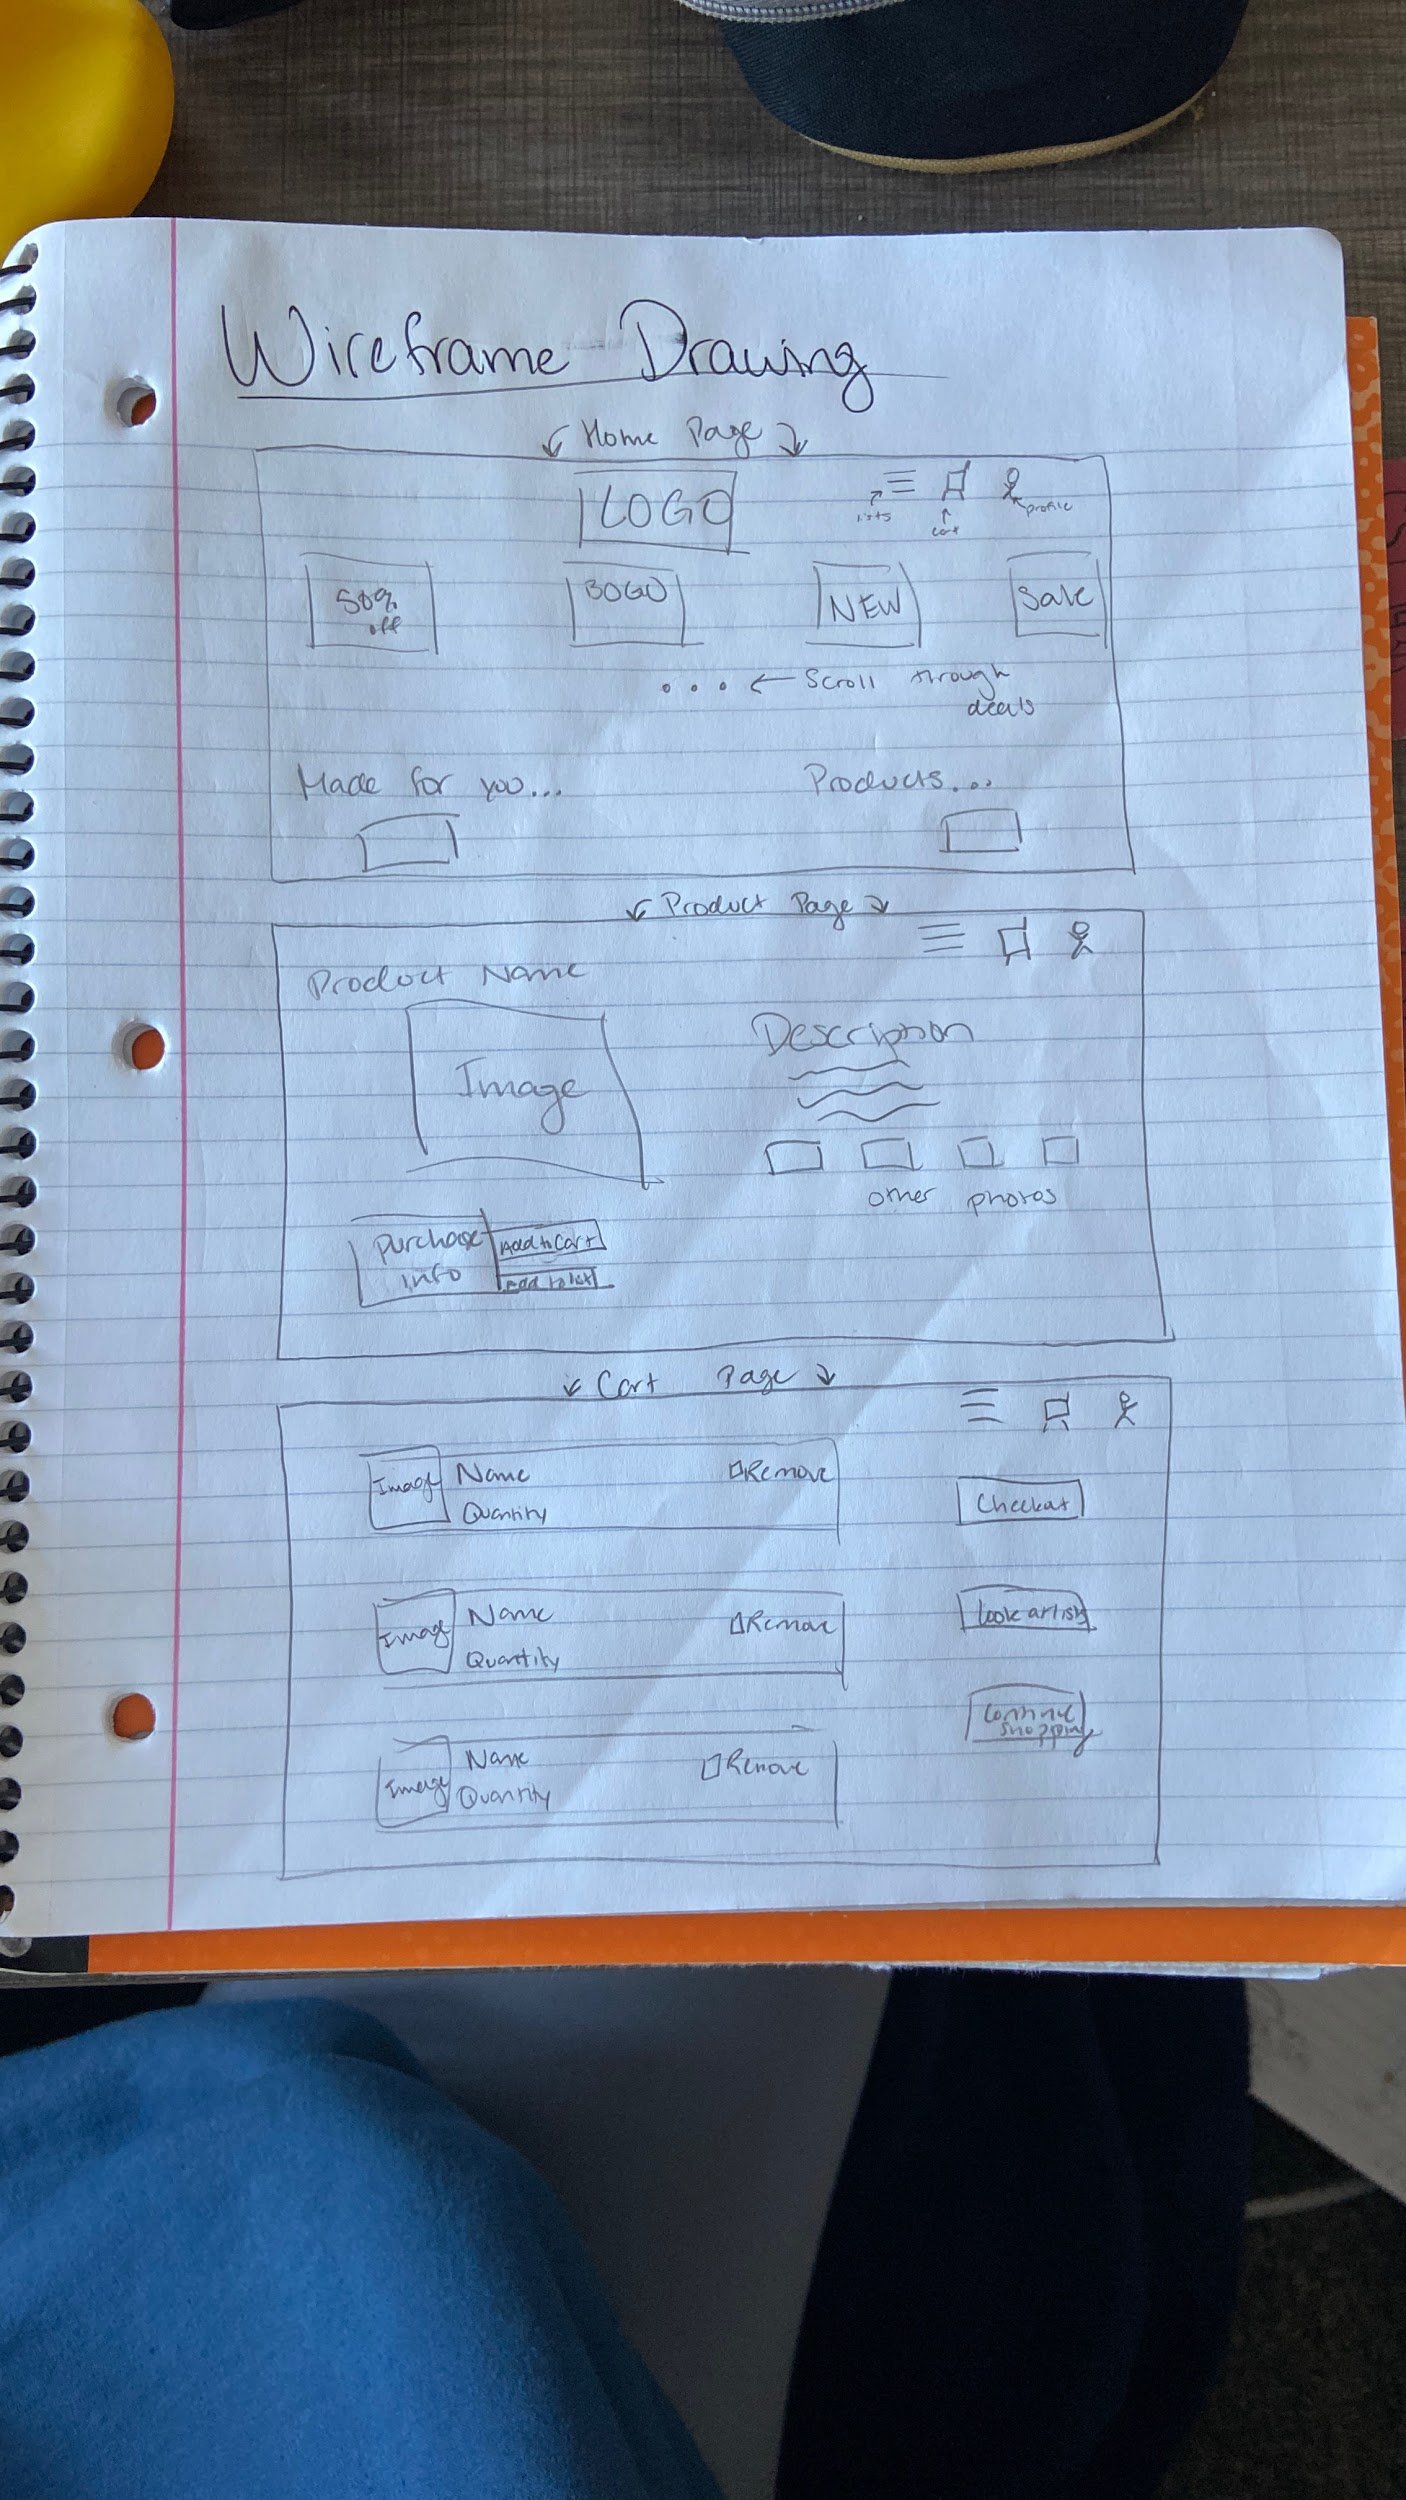 Wireframe Drawing
Home Page
LOGO
lists
cart
profile
50%
off
BOGO
NEW
Sale
Scroll through
deals
Made for you...
Products...
Product Page
Product Name
Image
Description
other photos
Purchase
info
Add to Cart
Add to list
Cart Page
Image
Name
Quantity
Remove
Checkout
Image
Name
Quantity
Remove
Look at lists
Continue
Shopping
Image
Name
Quantity
Remove